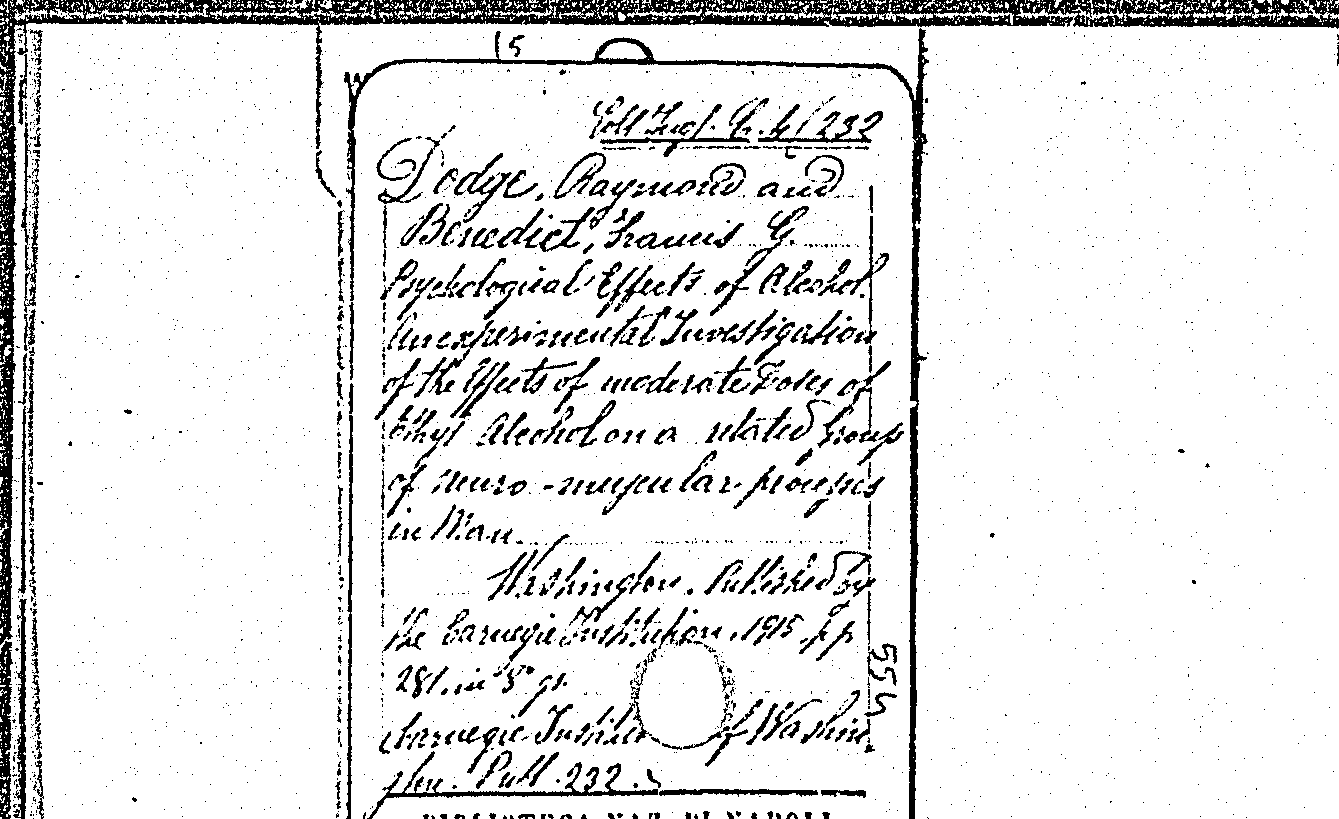 15
Coll. Ingl. Q. 4/232
Dodge, Raymond and
Benedict, Francis G.
Psychological Effects of Alcohol.
An experimental Investigation
of the Effects of moderate Doses of
Ethyl Alcohol on a related Group
of neuro-muscular processes
in Man.
Washington. Published by
the Carnegie Institution. 1915. pp
281. in 8° gr.
Carnegie Institu of Washin
gton. Publ. 232.
554
BIBLIOTECA NAZ. DI NAPOLI